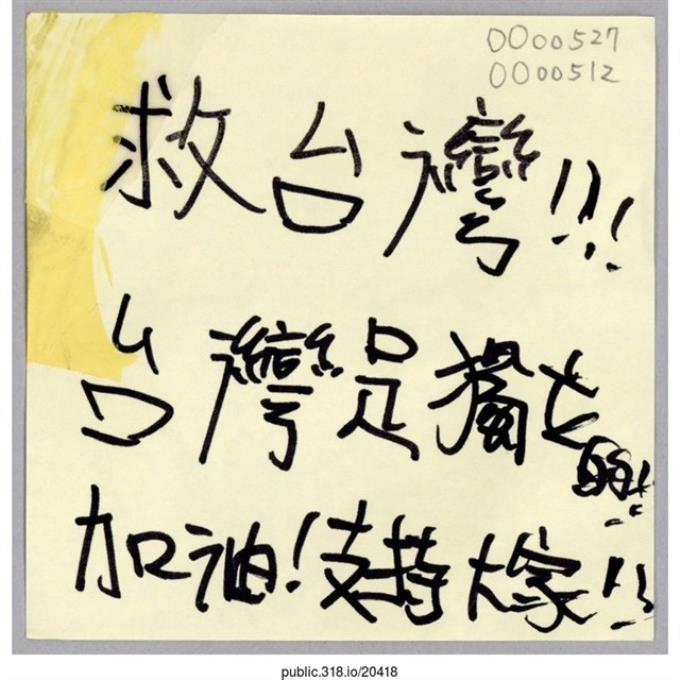 0000527
0000512
救台灣!!!
台灣是獨立
的!!
加油!支持大家!!
public.318.io/20418